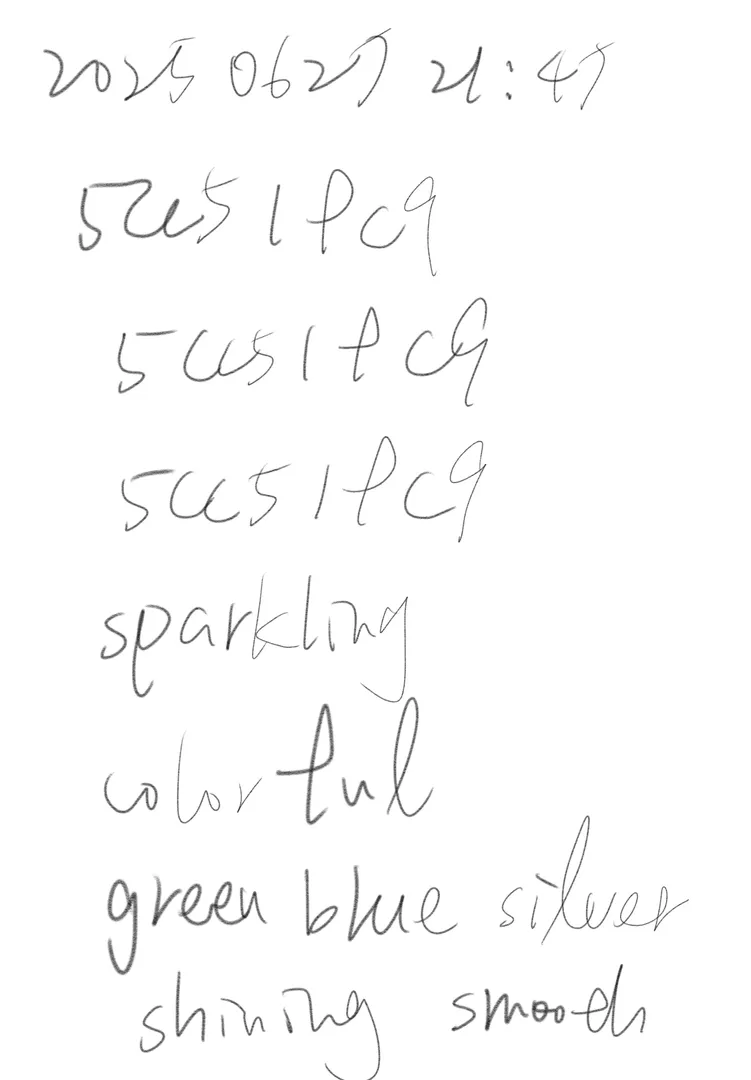 20250627 21:47
5cc51fc9
5cc51fc9
5cc51fc9
sparkling
colorful
green blue silver
shining smooth